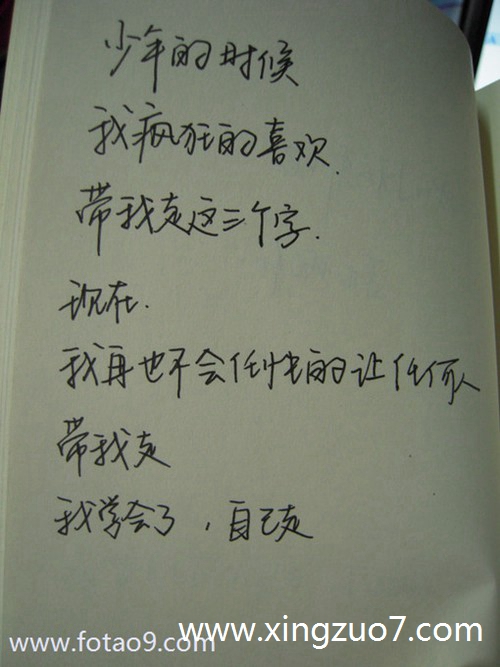 少年的时候
我疯狂的喜欢.
带我走这三个字.
现在.
我再也不会任性的让任何人
带我走
我学会了，自己走
www.xingzuo7.com
www.fotao9.com